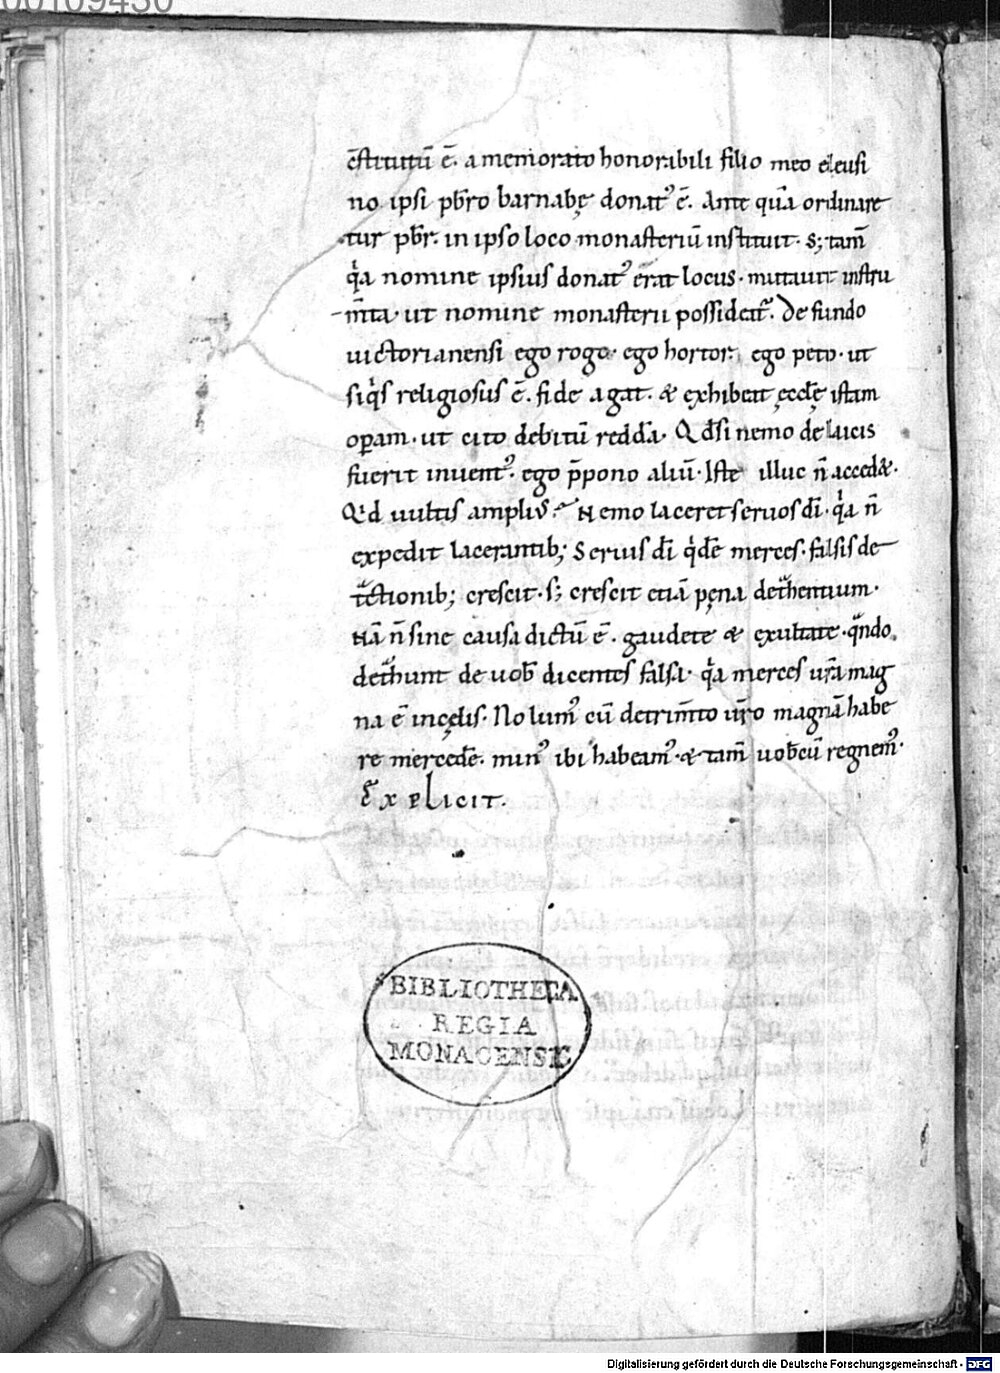 00109430
c̄stitutū ē. a memorato honorabili filio meo eleusi
no ipsi pb̄ro barnabę donatꝰ ē. Ante quā ordinare
tur pb̄r. in ipso loco monasteriū instituit. s; tam̄
qͥa nomine ipsius donatꝰ erat locus. mutauit instru
m̄ta. ut nomine monasterii possideat᷑. De fundo
uictorianensi ego rogo. ego hortor. ego peto. ut
siqͥs religiosus ē. fide agat. & exhibeat ęccłę istam
oꝑam. ut cito debitū reddat. Qd̄ si nemo de laicis
fuerit inuentꝰ. ego p̄pono aliū. Iste illuc n̄ acced&.
Qͥd uultis ampliꝰ. Nemo laceret seruos dī. qͥa n̄
expedit lacerantib; Seruis dī qͥdē merces. falsis de
tͣctionib; crescit. s; crescit etiā pęna detͣhentium.
Nā n̄ sine causa dictū ē. gaudete & exultate. qͣndo
detͣhunt de uob̄ dicentes falsa. qͥa merces ur̄a mag
na ē in cęlis. Nolumꝰ cū detrim̄to ur̄o magnā habe
re mercedē. minꝰ ibi habeamꝰ. & tam̄ uob̄cū regnemꝰ.
Explicit.
BIBLIOTHECA
REGIA
MONACENSIS
Digitalisierung gefördert durch die Deutsche Forschungsgemeinschaft - DFG